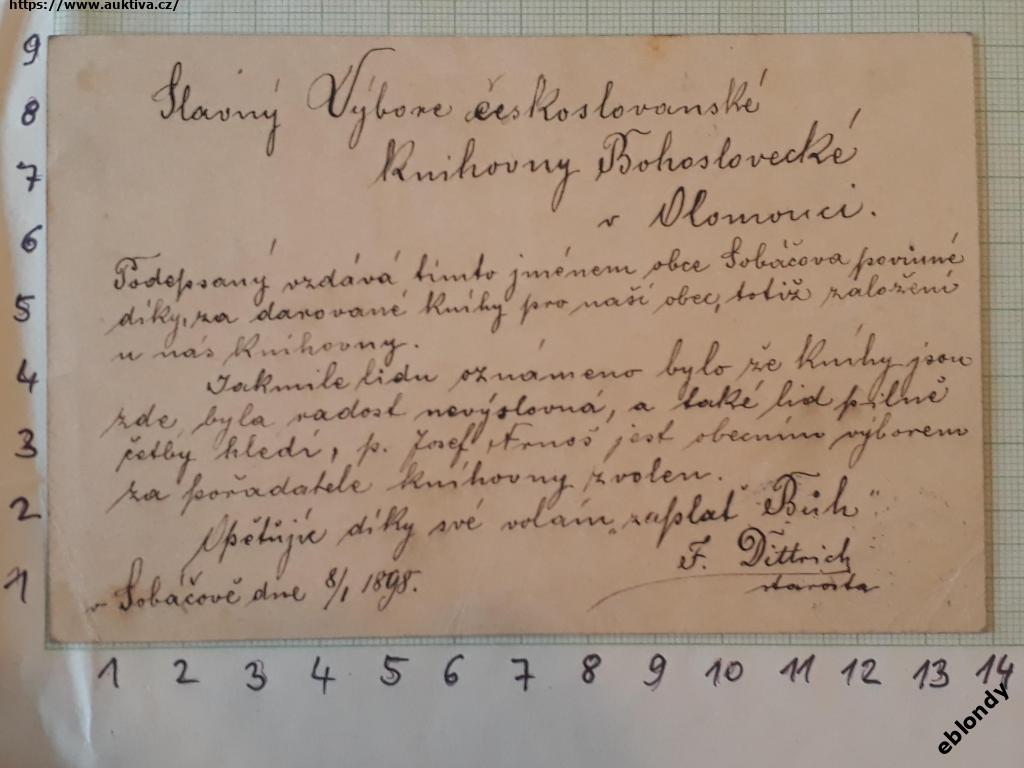 https://www.auktiva.cz/
Slavný Výbore českoslovanské
knihovny Bohoslovecké
v Olomouci.
Podepsaný vzdává tímto jménem obce Sobáčova povinné
díky, za darované knihy pro naší obec, totiž založení
u nás knihovny.
Jakmile lidu oznámeno bylo že knihy jsou
zde byla radost nevýslovná, a také lid pilně
četby hledí, p. Josef Arnoš jest obecním výborem
za pořadatele knihovny zvolen.
Opětujíc díky své volám „zaplať Bůh“
F. Dittrich
starosta
v Sobáčově dne 8/1 1898.
9
8
7
6
5
4
3
2
1
1 2 3 4 5 6 7 8 9 10 11 12 13 14
eblondy